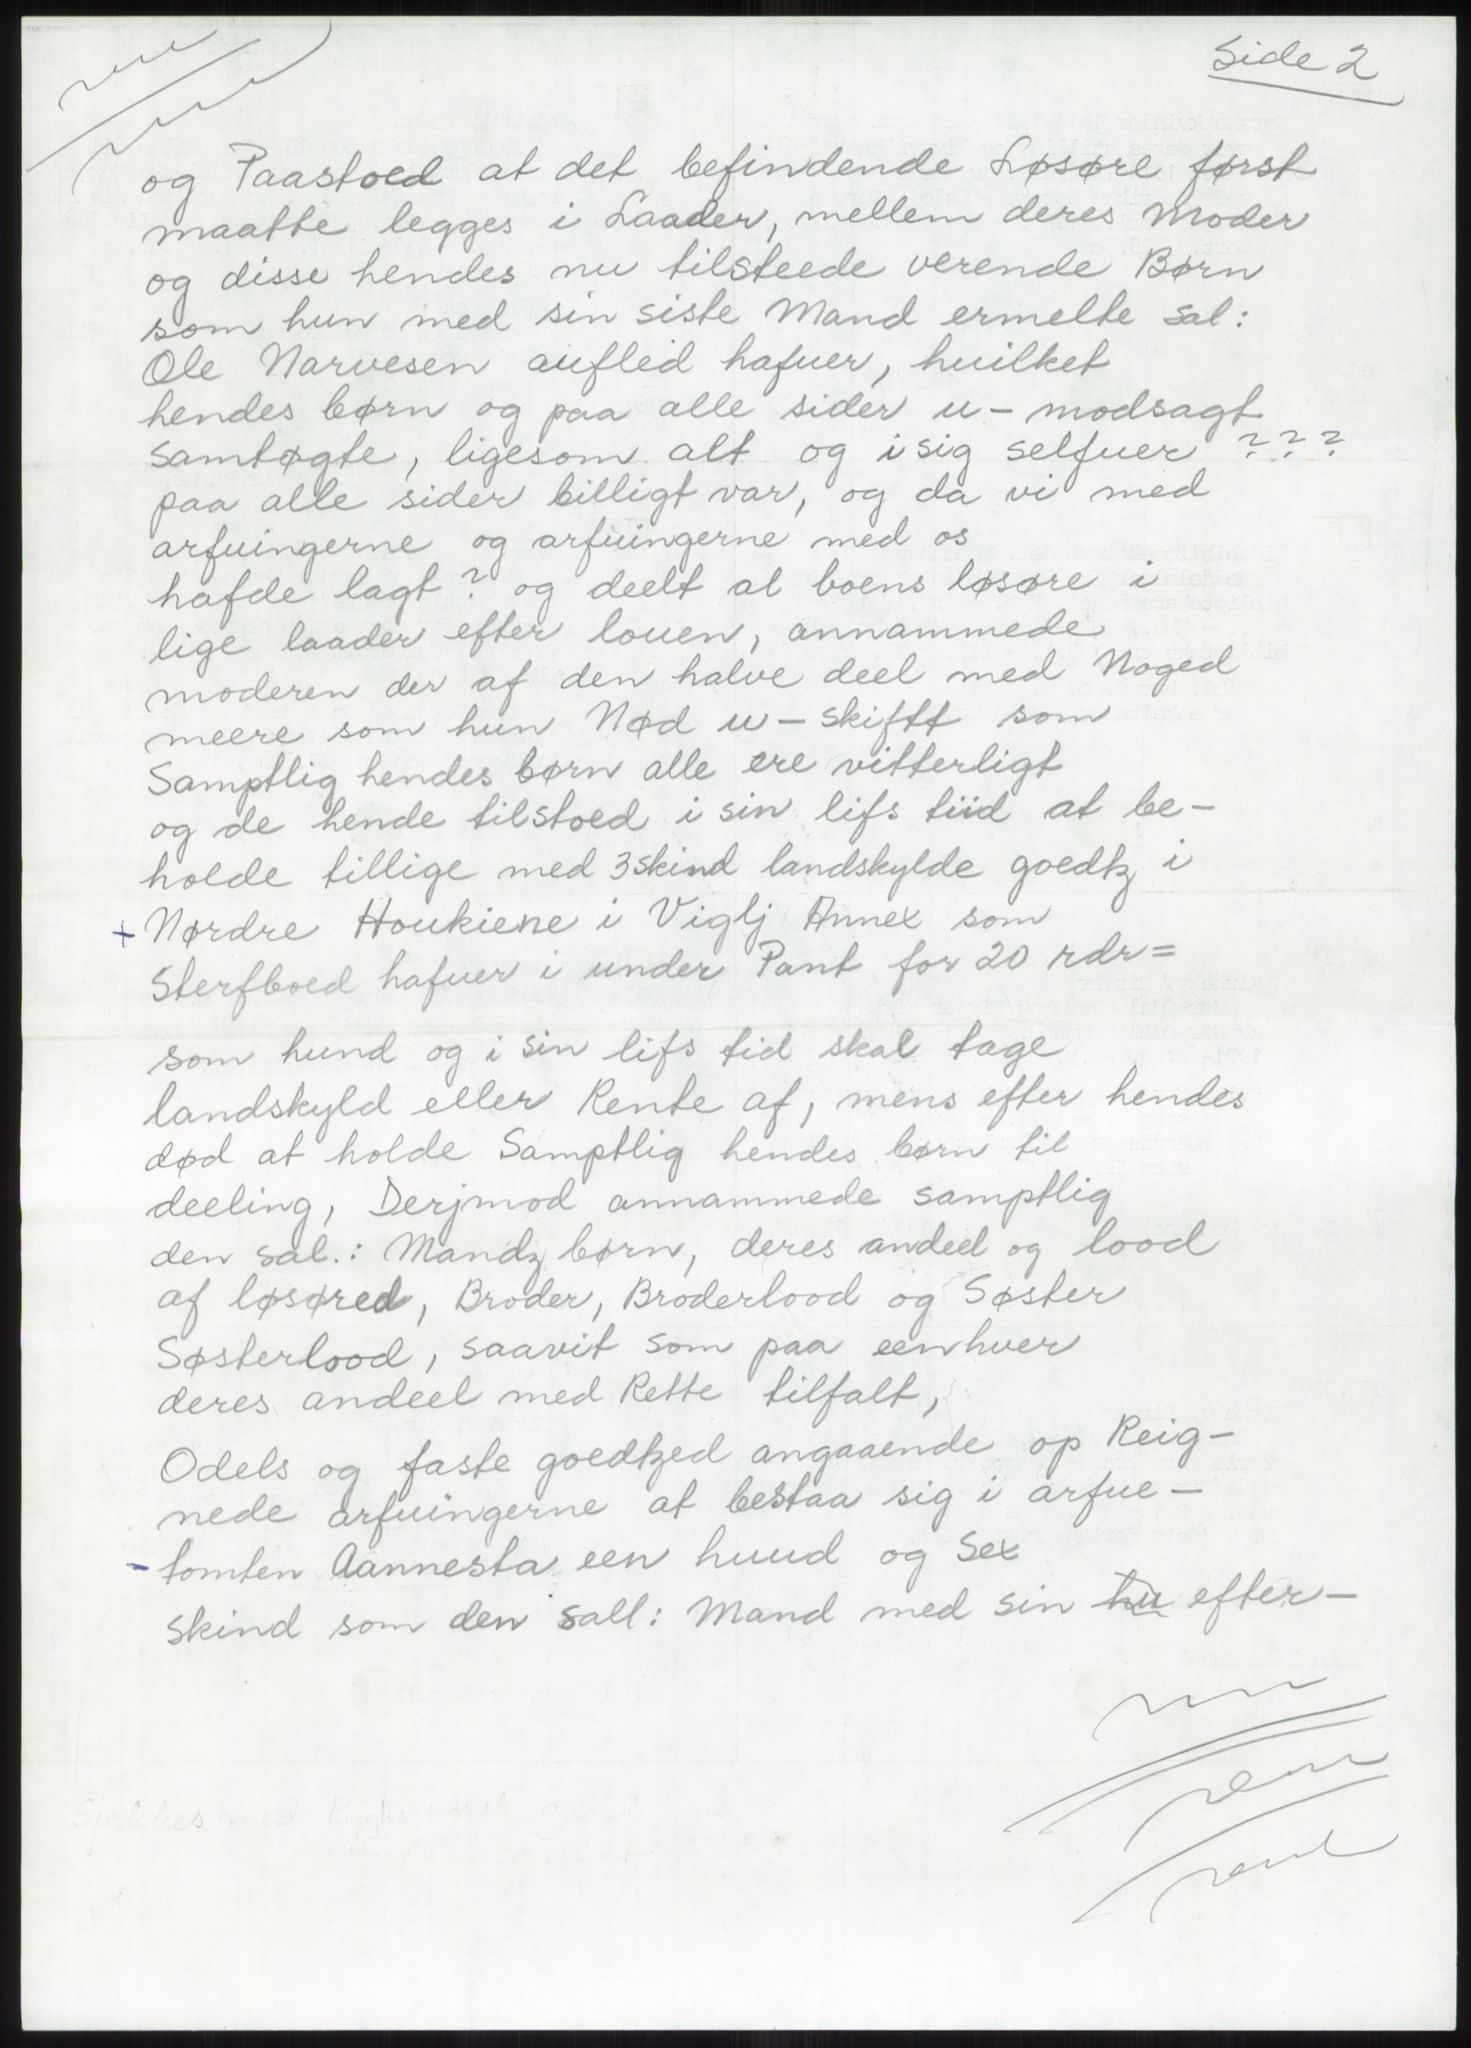 Side 2
og Paastoed at det befindende Løsøre først
maatte legges i Laader, mellem deres Moder
og disse hendes nu tilsteede verende Børn
som hun med sin siste Mand ermelte sal:
Ole Narvesen aufled hafuer, huilket
hendes børn og paa alle sider u- modsagt
samtøgte, ligesom alt og i sig selfuer ???
paa alle sider billigt var, og da vi med
arfuingerne og arfuingerne med os
hafde lagt? og deelt al boens løsøre i
lige laader efter louen, annammede
moderen der af den halve deel med Noged
meere som hun Nød u- skiftt som
Samptlig hendes børn alle ere vitterligt
og de hende tilstoed i sin lifs tiid at be-
holde tillige med 3 skind landskylde goedtz i
+ Nørdre Houkiene i Viglj Annex som
Sterfboed hafuer i under Pant for 20 rdr=
som hund og i sin lifs tid skal tage
landskyld eller Rente af, mens efter hendes
død at holde Samptlig hendes børn til
deeling, Derjmod annammede samptlig
den sal.: Mandz børn, deres andeel og lood
af løsøred, Broder, Broderlood og Søster
Søsterlood, saavit som paa eenhver
deres andeel med Rette tilfalt,
Odels og faste goedtzed angaaende op Reig-
nede arfuingerne at bestaa sig i arfue-
- tomten Aannesta een huud og Sex
skind som den sall: Mand med sin hu efter-